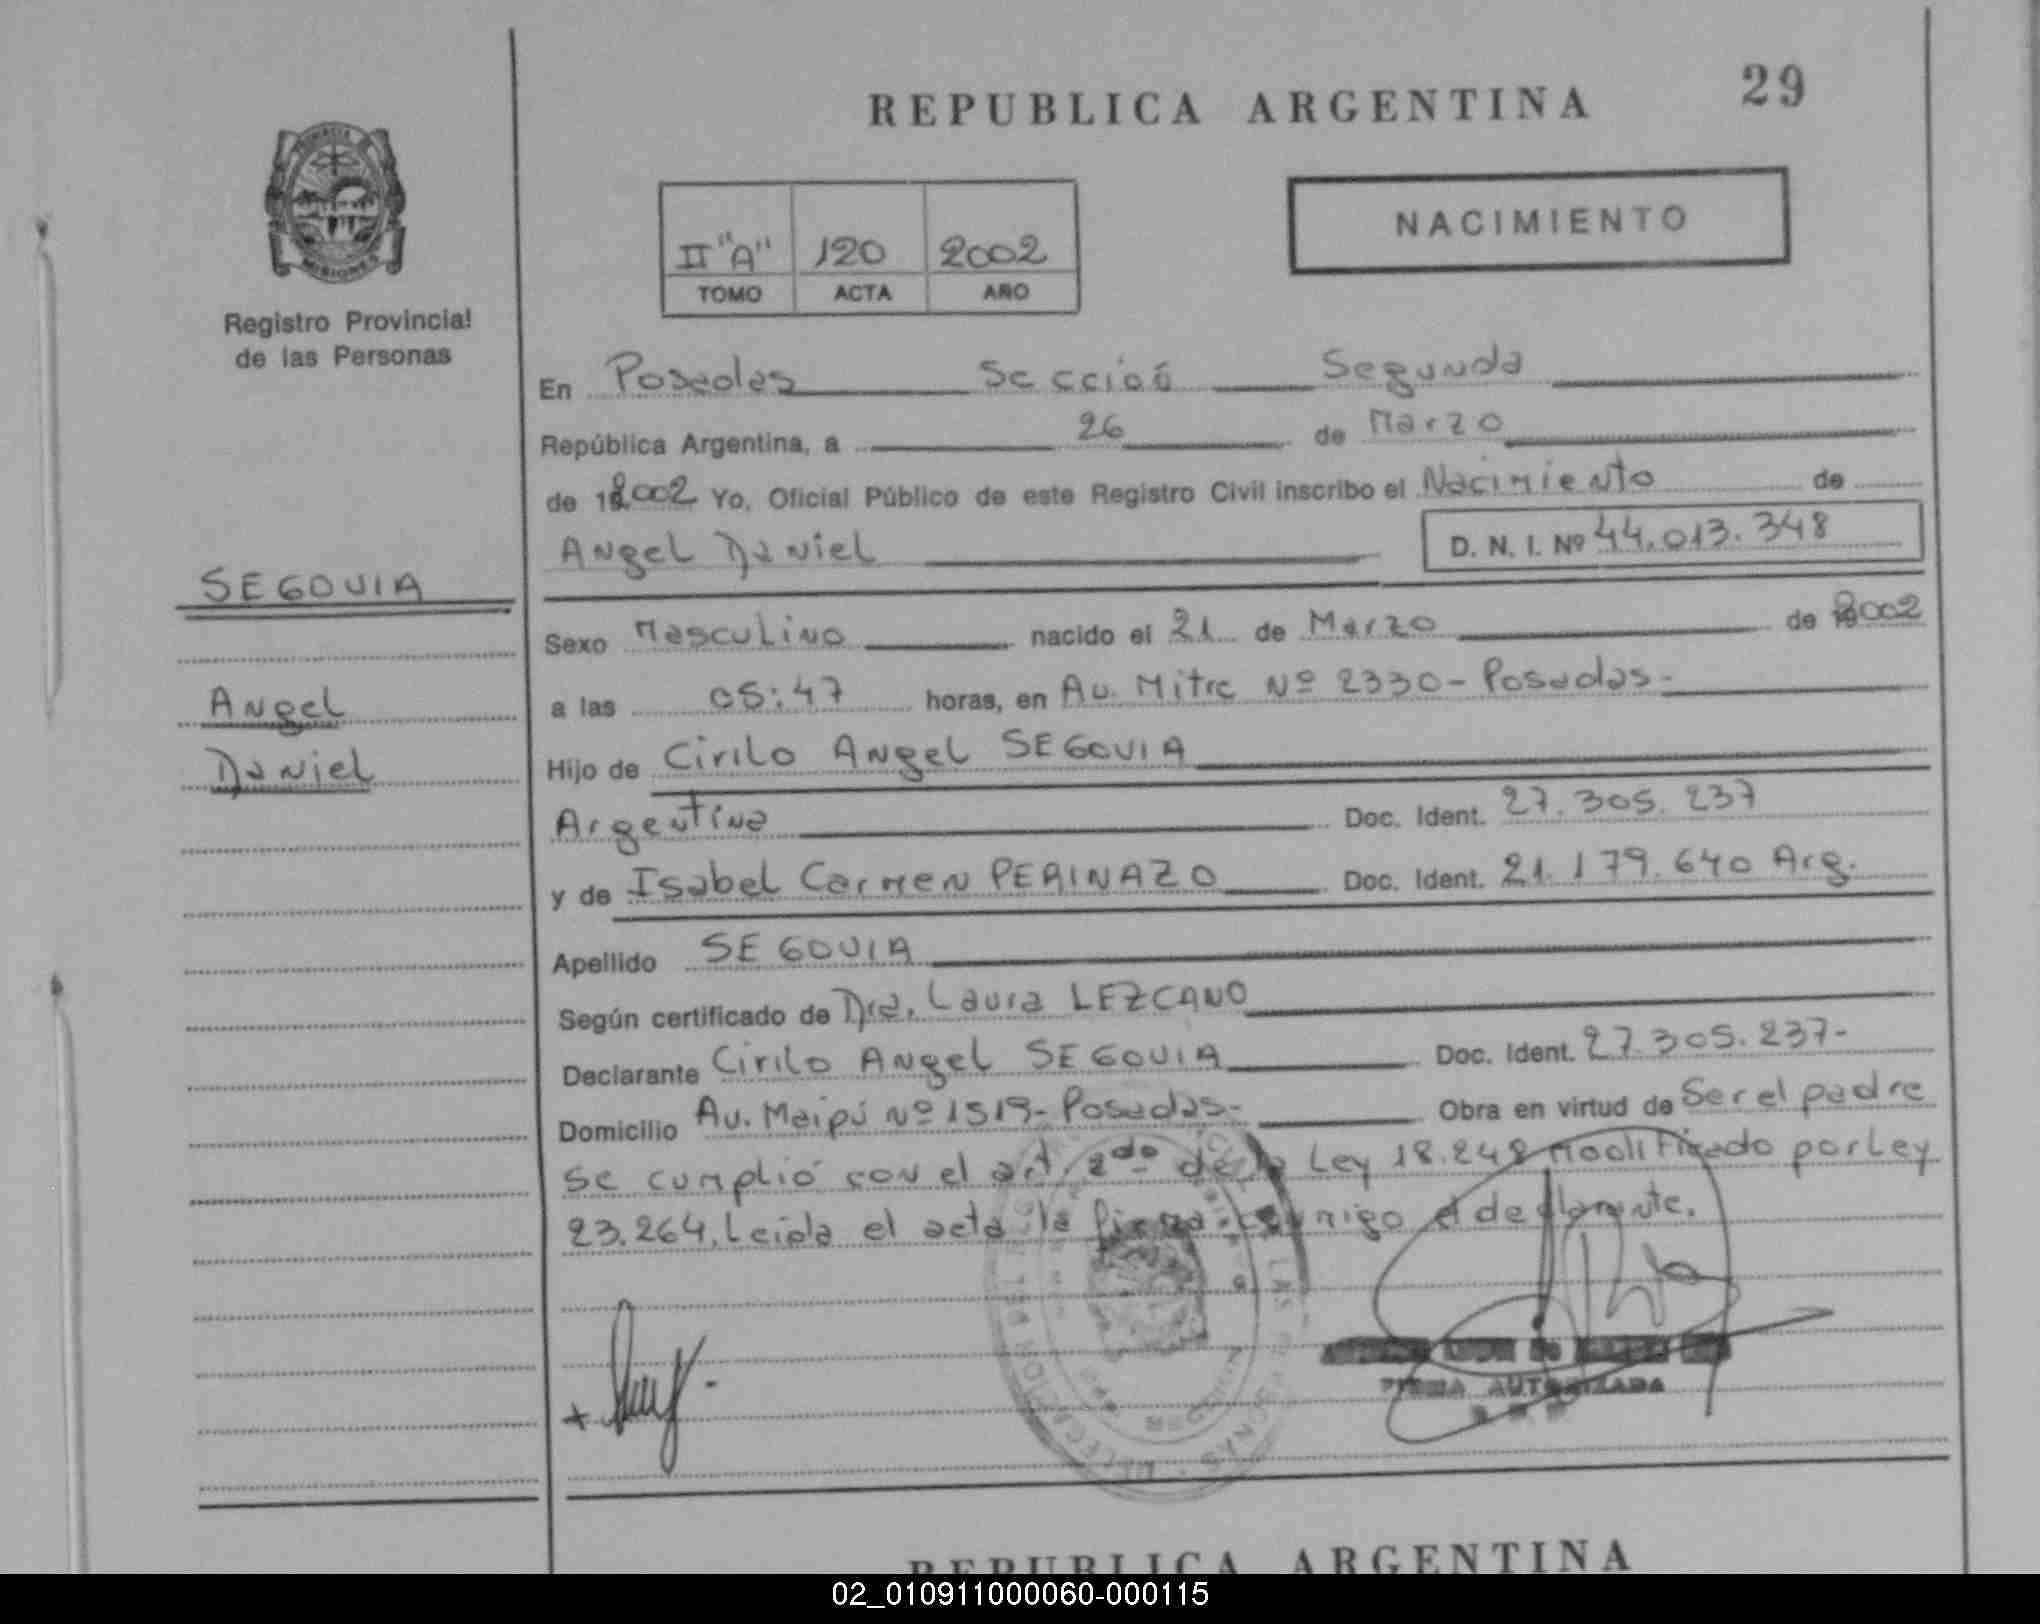 REPUBLICA ARGENTINA
29
MISIONES
Registro Provincial
de las Personas
II "A" 120 2002
TOMO ACTA AÑO
NACIMIENTO
En Posadas Sección Segunda
República Argentina, a 26 de Marzo
de 2002 Yo, Oficial Público de este Registro Civil inscribo el Nacimiento de
Angel Daniel
D. N. I. Nº 44.013.348
SEGOVIA
Angel
Daniel
Sexo Masculino nacido el 21 de Marzo de 2002
a las 05:47 horas, en Av. Mitre Nº 2330 - Posadas -
Hijo de Cirilo Angel SEGOVIA
Argentina Doc. Ident. 27.305.237
y de Isabel Carmen PERINAZO Doc. Ident. 21.179.640 Arg.
Apellido SEGOVIA
Según certificado de Dra. Laura LEZCANO
Declarante Cirilo Angel SEGOVIA Doc. Ident. 27.305.237-
Domicilio Av. Maipú Nº 1519 - Posadas - Obra en virtud de Ser el padre
se cumplió con el art. 2do de la Ley 18.248 Modificado por Ley
23.264. Leída el acta la firma conmigo el declarante.
FIRMA AUTORIZADA
REPUBLICA ARGENTINA
02_010911000060-000115